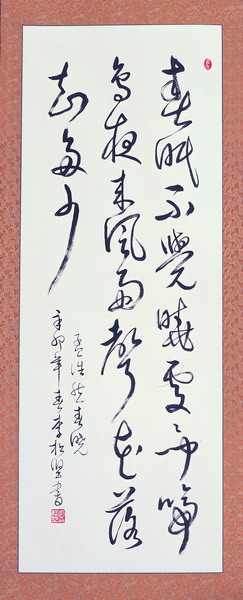 春眠不覺曉處々聞啼
鳥夜來風雨聲花落
知多少
孟浩然春曉
辛卯年春李松堅書